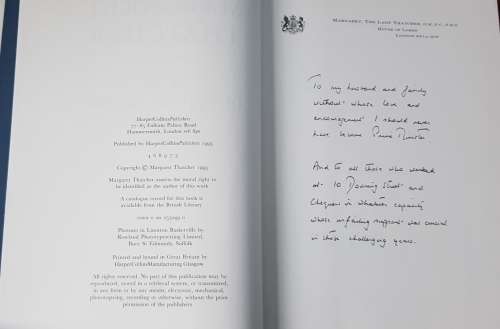 HarperCollinsPublishers
77–85 Fulham Palace Road
Hammersmith, London W6 8JB
Published by HarperCollinsPublishers 1993
4 6 8 9 7 5
Copyright © Margaret Thatcher 1993
Margaret Thatcher asserts the moral right to
be identified as the author of this work
A catalogue record for this book is
available from the British Library
ISBN 0 00
Phototypeset in Linotron Baskerville by
Rowland Phototypesetting Limited,
Bury St Edmunds, Suffolk
Printed and bound in Great Britain by
HarperCollinsManufacturing Glasgow
All rights reserved. No part of this publication may be
reproduced, stored in a retrieval system, or transmitted,
in any form or by any means, electronic, mechanical,
photocopying, recording or otherwise, without the prior
permission of the publishers.
Margaret, The Lady Thatcher, O.M., P.C., F.R.S.
House of Lords
London SW1A 0PW
To my husband and family
without whose love and
encouragement I should never
have become Prime Minister
And to all those who worked
at 10 Downing Street and
Chequers in whatever capacity
whose unfailing support was crucial
in those challenging years.